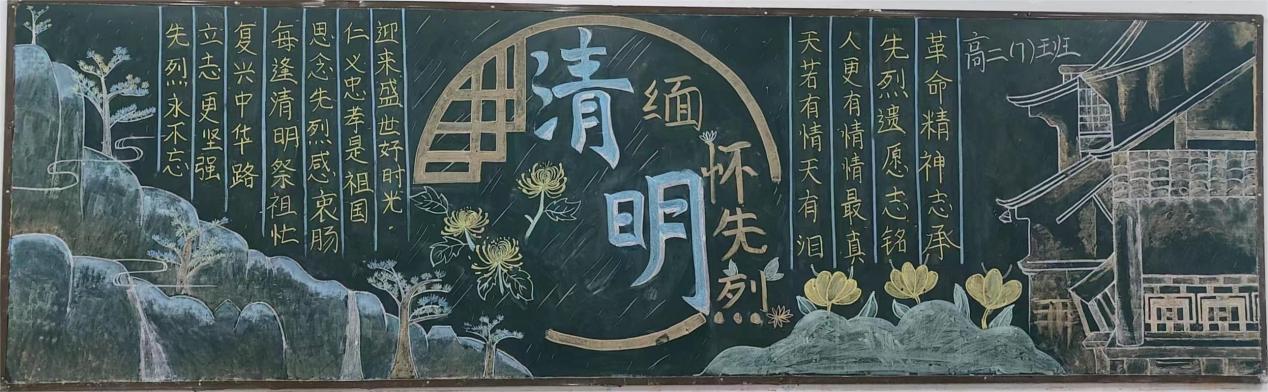 高二(7)班
革命精神志承
先烈遗愿志铭
人更有情情最真
天若有情天有泪
清明
缅怀先烈
迎来盛世好时光.
仁义忠孝是祖国
思念先烈感衷肠
每逢清明祭祖忙
复兴中华路
立志更坚强
先烈永不忘